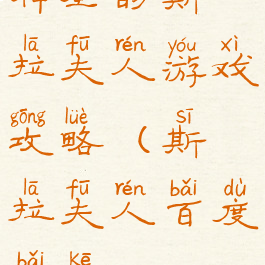 lā fū rén yóu xì
拉夫人游戏
gōng lüè sī
攻略（斯
lā fū rén bǎi dù
拉夫人百度
bǎi kē